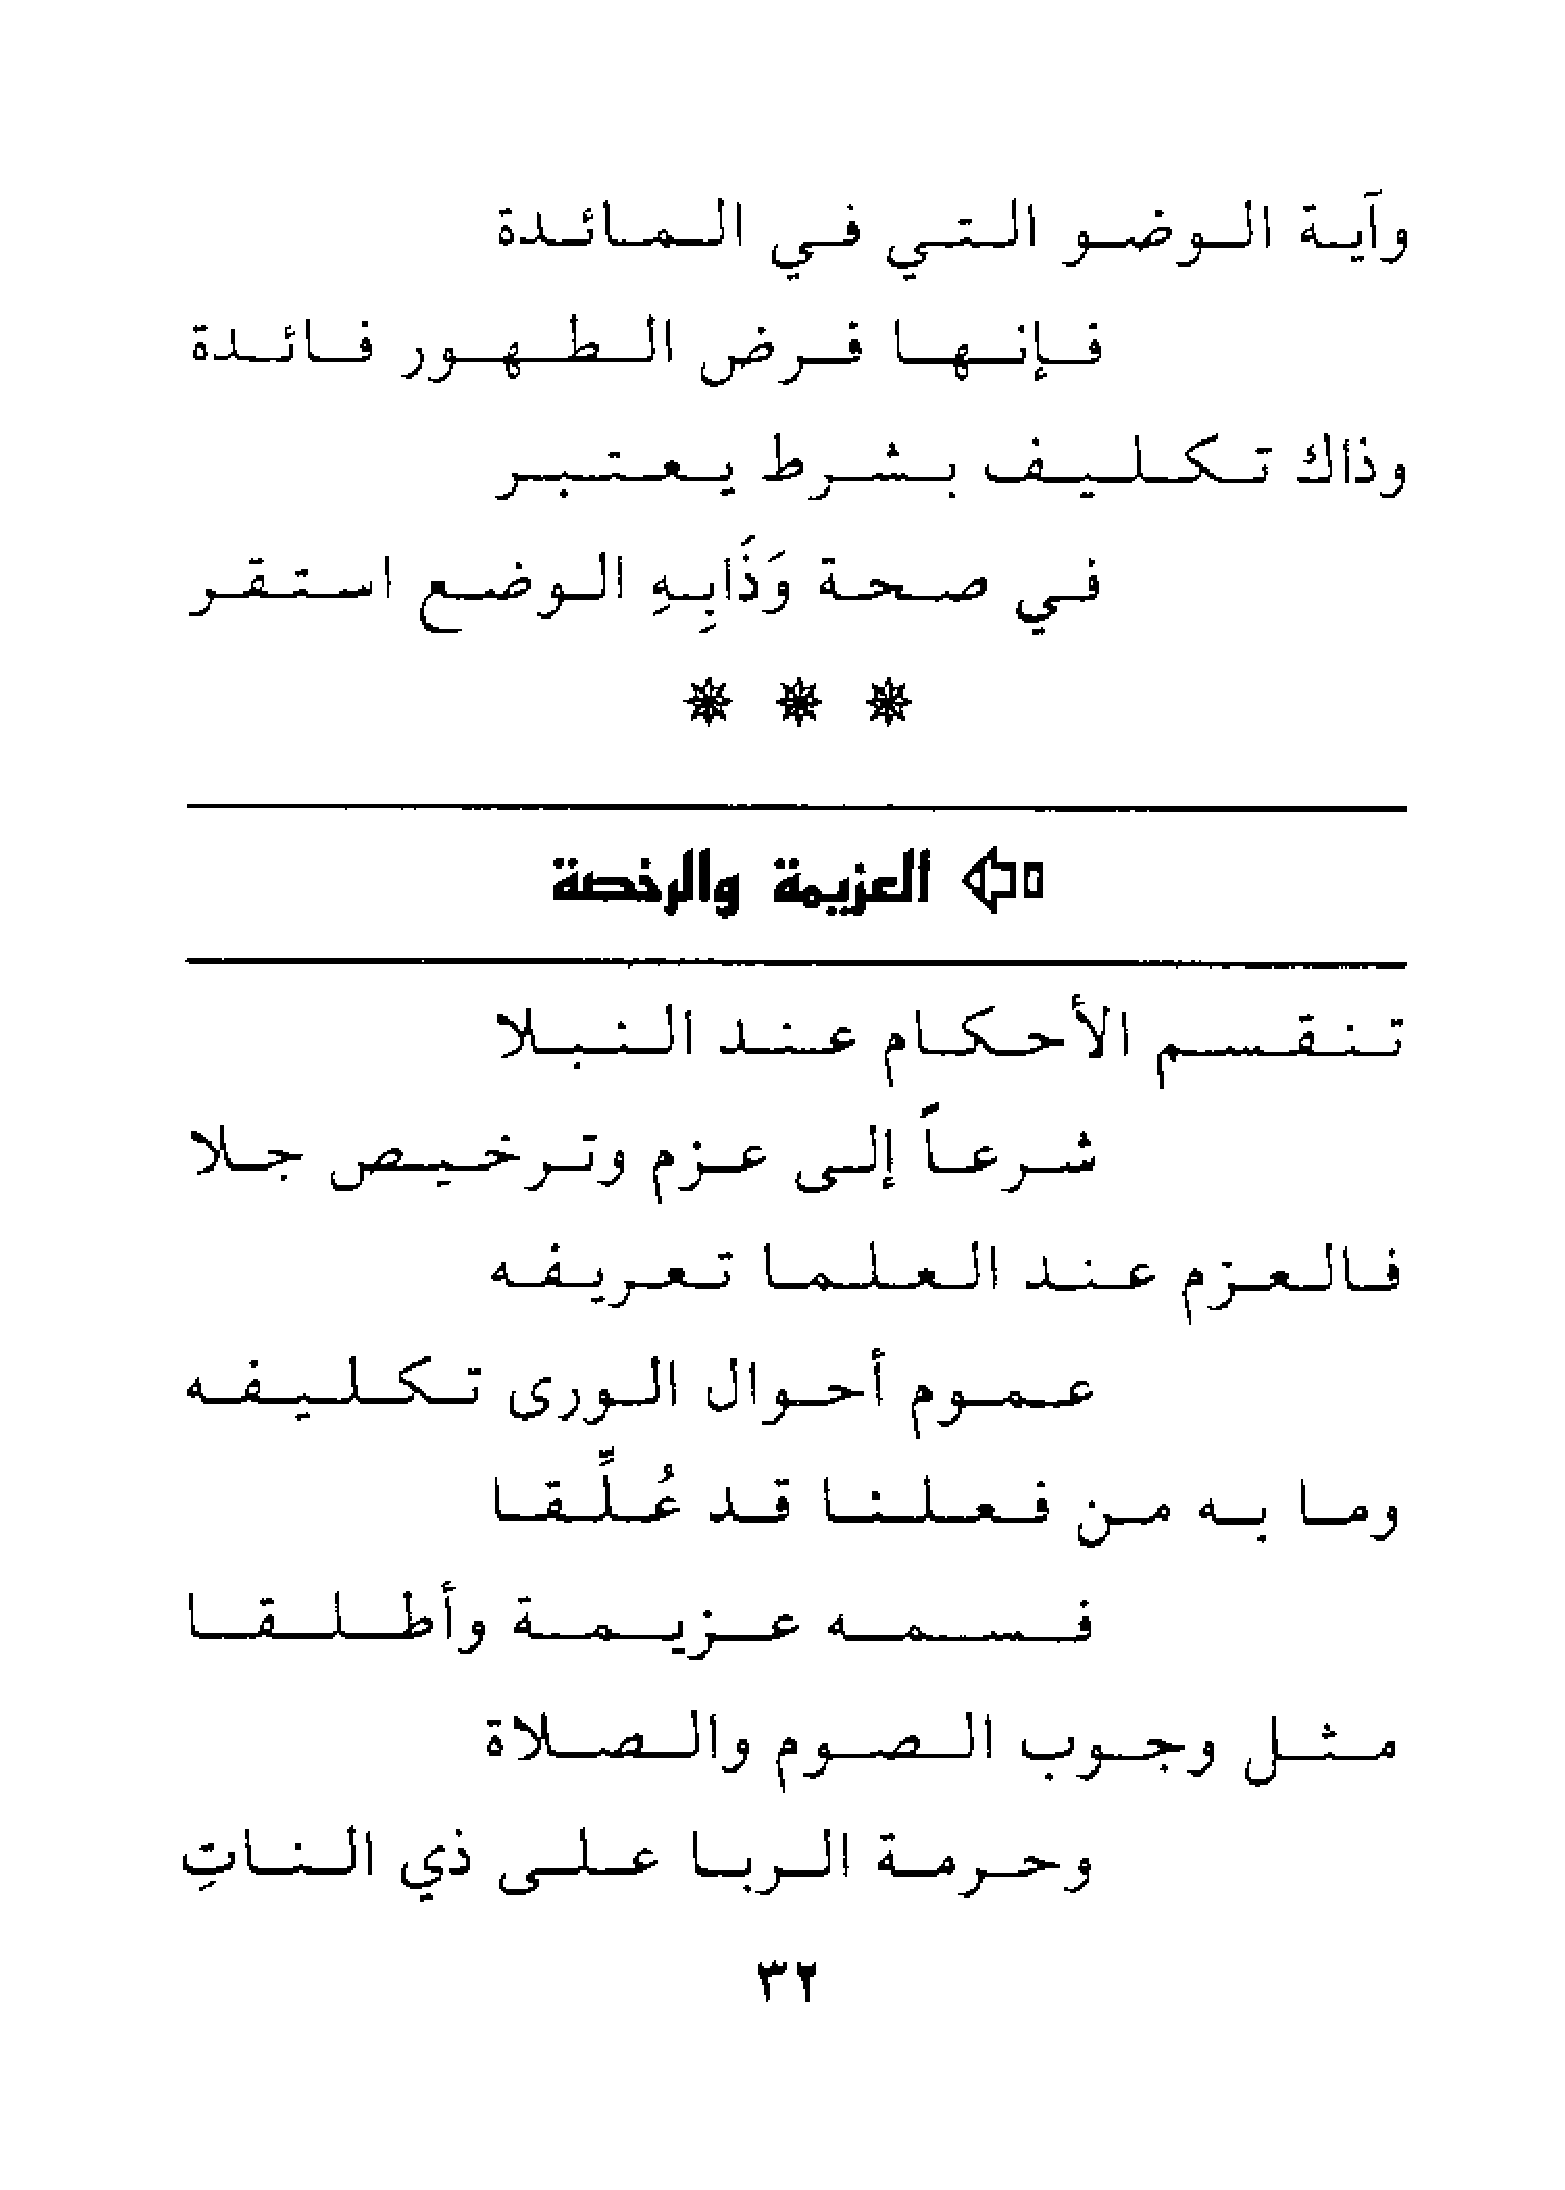 وآية الوضو التي في المائدة
فإنها فرض الطهور فائدة
وذاك تكليف بشرط يعتبر
في صحة وَذَابِهِ الوضع استقر
العزيمة والرخصة
تنقسم الأحكام عند النبلا
شرعاً إلى عزم وترخيص جلا
فالعزم عند العلما تعريفه
عموم أحوال الورى تكليفه
وما به من فعلنا قد عُلِّقا
فسمه عزيمة وأطلقا
مثل وجوب الصوم والصلاة
وحرمة الربا على ذي الناتِ
٣٢